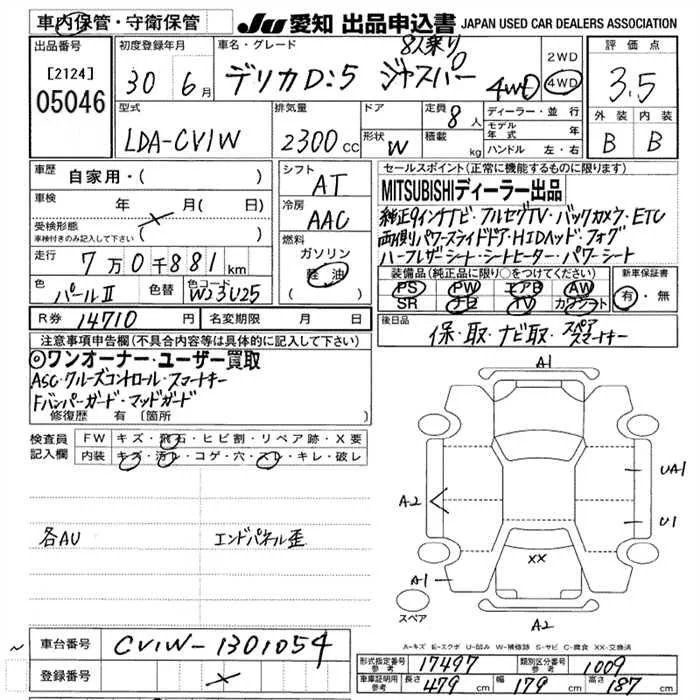 車内保管・守衛保管
JU 愛知 出品申込書 JAPAN USED CAR DEALERS ASSOCIATION
出品番号
[2124]
05046
初度登録年月
30年 6月
車名・グレード
デリカD:5 ジャスパー
8人乗り
4WD
2WD
4WD
評価点
3.5
外装 内装
B B
型式
LDA-CV1W
排気量
2300 CC
ドア
形状 W
定員 8人
積載 kg
ディーラー・並行
モデル年式 年
ハンドル 左・右
車歴 自家用・( )
車検 年 月( 日)
受検形態
車検付きのみ記入して下さい ( )
走行 7万0千881km
色 パールⅡ 色替 色コード W23U25
シフト
AT
冷房
AAC
燃料
ガソリン
軽油
セールスポイント(正常に機能するものに限ります)
MITSUBISHIディーラー出品
純正9インチナビ・フルセグTV・バックカメラ・ETC
両側パワースライドドア・HIDヘッド・フォグ
ハーフレザーシート・シートヒーター・パワーシート
装備品(純正品に限り○をつけてください)
PS PW エアB AW
SR ナビ TV カワシート
新車保証書
有・無
R券 14710円 名変期限 月 日
後日品 保・取・ナビ取・スペア
スマートキー
注意事項申告欄(不具合内容等は具体的に記入して下さい)
◎ワンオーナー・ユーザー買取
ASC・クルーズコントロール・スマートキー
Fバンパーガード・マッドガード
修復歴 有 〔箇所 〕
検査員記入欄
FW キズ・飛石・ヒビ割・リペア跡・X要
内装 キズ・汚レ・コゲ・穴・スレ・キレ・破レ
各AU エンドパネル歪
A1
A2
UA1
U1
XX
A1
A2
スペア
A-キズ E-エクボ U-凹み W-補修跡 S-サビ C-腐食 XX-交換済
車台番号 CV1W-1301054
登録番号
形式指定番号 参考 17497 類別区分番号 参考 1009
車庫証明用 参考 長さ 479cm 幅 179cm 高さ 187cm